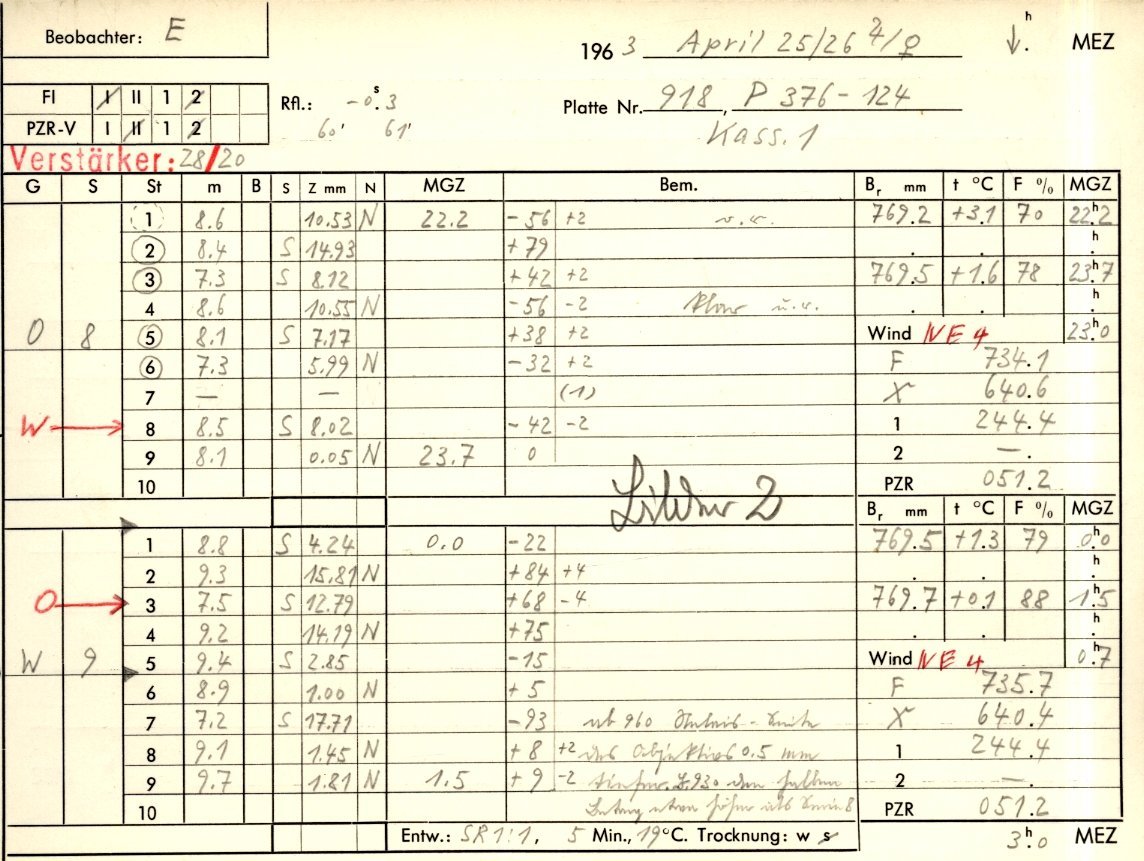 Beobachter: E
196 3 April 25/26 ♃/♀ ↓.ʰ MEZ
FI I II 1 2
PZR-V I II 1 2
Rfl.: -0ˢ.3
60' 61'
Platte Nr. 918, P 376-124
Kass. 1
Verstärker: 28/20
G S St m B S Z mm N MGZ Bem. Bᵣ mm t °C F % MGZ
1 8.6 10.53 N 22.2 -56 +2 769.2 +3.1 70 22ʰ.2
2 8.4 S 14.93 +79 . . ʰ.
3 7.3 S 8.12 +42 +2 769.5 +1.6 78 23ʰ.7
4 8.6 10.55 N -56 -2 . . ʰ.
O 8 5 8.1 S 7.17 +38 +2 Wind NE 4 23ʰ.0
6 7.3 5.99 N -32 +2 F 734.1
7 — — (1) X 640.6
W → 8 8.5 S 8.02 -42 -2 1 244.4
9 8.1 0.05 N 23.7 0 2 —.
10 PZR 051.2
Bilder 2
Bᵣ mm t °C F % MGZ
1 8.8 S 4.24 0.0 -22 769.5 +1.3 79 0ʰ.0
2 9.3 15.81 N +84 +4 . . ʰ.
O → 3 7.5 S 12.79 +68 -4 769.7 +0.1 88 1ʰ.5
4 9.2 14.19 N +75 . . ʰ.
W 9 5 9.4 S 2.85 -15 Wind NE 4 0ʰ.7
6 8.9 1.00 N +5 F 735.7
7 7.2 S 17.71 -93 ab 960 X 640.4
8 9.1 1.45 N +8 +2 des Objektivs 0.5 mm 1 244.4
9 9.7 1.81 N 1.5 +9 -2 930 den halben 2 —.
10 Betrag etwas höher als Serie 8 PZR 051.2
Entw.: SR 1:1, 5 Min., 19°C. Trocknung: w s 3ʰ.0 MEZ